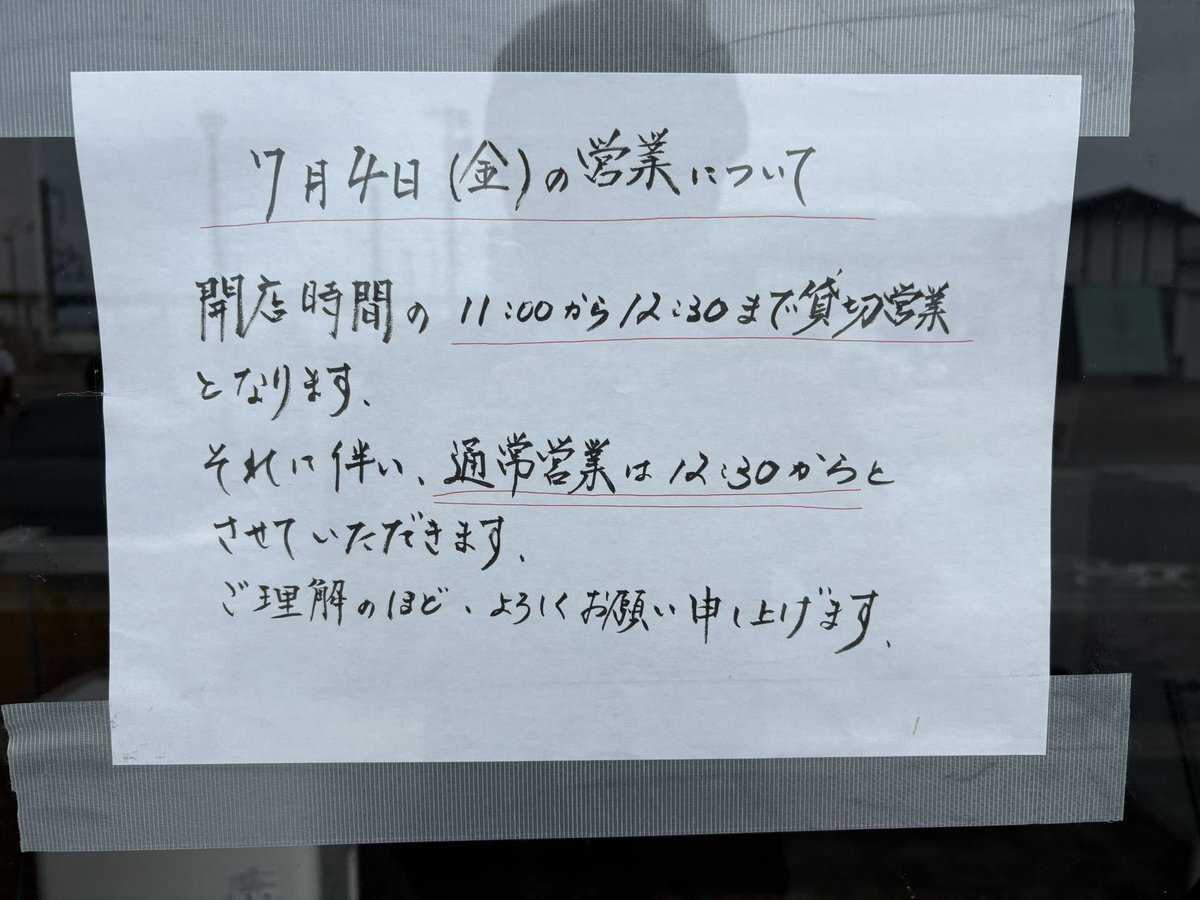 7月4日(金)の営業について
開店時間の 11:00から12:30まで貸切営業
となります、
それに伴い、通常営業は12:30からと
させていただきます、
ご理解のほど、よろしくお願い申し上げます、